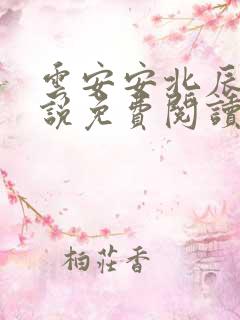 雲安安北辰
說免費閱讀
柏莊香